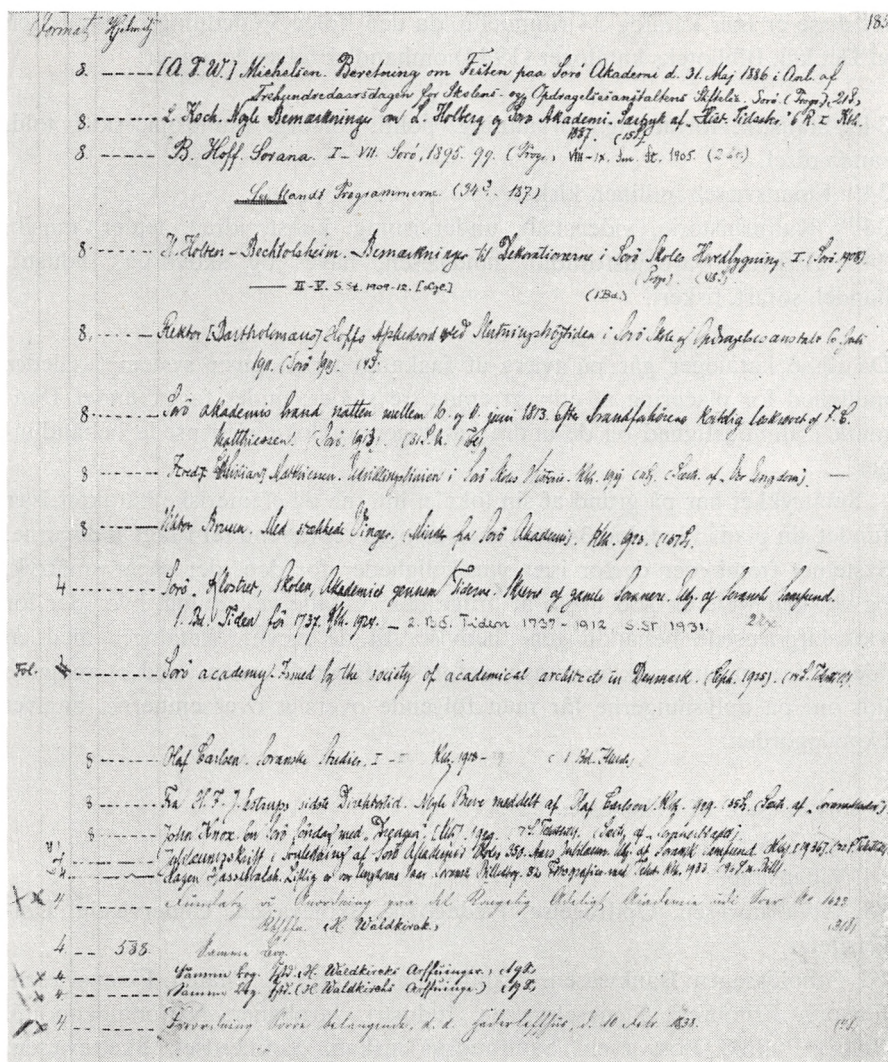 Format Hjelmtz 185
8. [A. F. W.] Michelsen. Beretning om Festen paa Sorö Akademi d. 31. Maj 1886 i Anl. af
Trehundredaarsdagen for Skolens og Opdragelsesanstaltens Stiftelse. Sorö. (Progr.) 218,
8 L. Koch. Nogle Bemærkninger om L. Holberg og Sorö Akademi. Særtryk af Hist. Tidsskr. 6 R. I Kbh.
1887.
8. B. Hoff. Sorana. I-VII. Sorö, 1895-99. (Progr.) VIII-IX. Sm. St. 1905.
blandt Programmerne. (34, - 187)
8 H. Holten-Bechtolsheim. Bemærkninger til Dekorationerne i Sorö Skoles Hovedbygning. I. (Sorö. 1908).
(Progr.)
— II-V. S. St. 1909-12. (1 Bd.)
8. Rektor [Bartholomæus] Hoffs Afskedsord ved Slutningshøjtiden i Sorö Skole og Opdragelsesanstalt
(Sorö
8. Sorö akademis brand natten mellem 10. og 11. juni 1813. Efter brandforhörene kortelig beskrevet af F. C.
Matthiessen. (Sorö. 1913)
8 Fredr. Matthiessen. Udviklingslinien i Sorö Skoles Historie. Kbh. (Særtr. af Vor Ungdom).
8 Viktor Bruun. Med stækkede Vinger. (Minder fra Sorö Akademi). Kbh. 1920.
4 Sorö. Klostret, Skolen, Akademiet gennem Tiderne. Skrevet af gamle Soranere. Udg. af Soransk Samfund.
1. Bd. Tiden för 1737. Kbh. 1924. — 2. Bd. Tiden 1737-1912 S. ST. 1931.
Fol. Sorö academy. Issued by the society of academical architects in Denmark. (Cph. 1925).
8 Olaf Carlsen. Soranske Studier. I - Kbh. 1918-
8 Fra H. F. J. Estrups sidste Direktørtid. Nogle Breve meddelt af Olaf Carlsen. Kbh. 1929. (Særtr. af
8 John Knox. En Sorö Söndag med Drenge.
i Anledning af Sorö Akademis Skoles 350-Aars Jubilæum. Udg. af Soransk Samfund. Kbh. (1936).
Hagen Hasselbalch. Liflig er vor Ungdoms Vaar. Soransk Billedbog. 82 Fotografier med Tekst. Kbh. 1933.
x x 4 Fundatz oc Anordning paa det Kongelig Adeligt Academie udi Soer Ao 1623
Kbhffn. (H. Waldkirch)
4 538 Samme Bog.
x x 4 Samme Bog. Ibid. (H. Waldkirchs Arffuinger.)
x x 4 Samme Bog. Ibid. (H. Waldkirchs Arffuinge.)
x x 4 Forordning Soröe belangende, d. d. Haderslefhus, d. 10